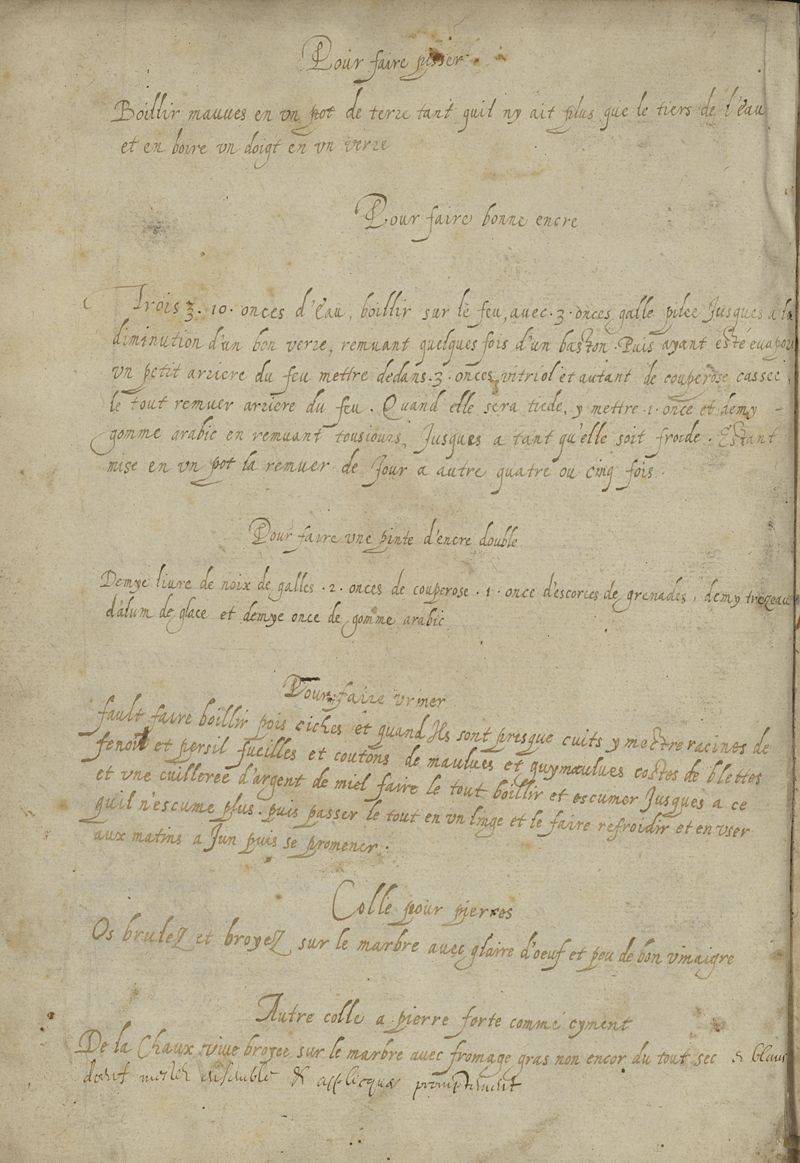 Pour faire pisser
Boillir mauves en un pot de terre tant quil ny ait plus que le tiers de l'eau
et en boire un doigt en un verre
Pour faire bonne encre
Trois ℥. 10. onces d'eau, boillir sur le feu, avec. 3. onces galle pilee Jusques a la
diminution d'un bon verre, remuant quelques fois d'un baston. Puis ayant esté evapore
un petit arriere du feu mettre dedans. 3. onces vitriol et autant de couperose cassee,
le tout remuer arriere du feu. Quand elle sera tiede, y mettre. 1. once et demy -
gomme arabic en remuant tousiours, Jusques a tant qu'elle soit froide. Estant
mise en un pot la remuer de Jour a autre quatre ou cinq fois.
Pour faire une pinte d'encre double
Demye livre de noix de galles. 2. onces de couperose. 1. once d'escorces de grenades, demy trezeau
d'alum de glace et demye once de gomme arabic
Pour faire uriner
fault faire boillir pois ciches et quand Ils sont presque cuits y mettre racines de
fenoil et persil fueilles et coutons de maulves et guymaulves costes de blettes
et une cuilleree d'argent de miel faire le tout boillir et escumer Jusques a ce
quil n'escume plus. puis passer le tout en un linge et le faire refroidir et en user
aux matins a Jun puis se promener.
Colle pour pierres
Os brulez et broyez sur le marbre avec glaire d'oeuf et peu de bon vinaigre
Autre colle a pierre forte comme cyment
De la Chaux vive broyee sur le marbre avec fromage gras non encor du tout sec & blanc
doeuf mesler ensemble & applicquer promptement